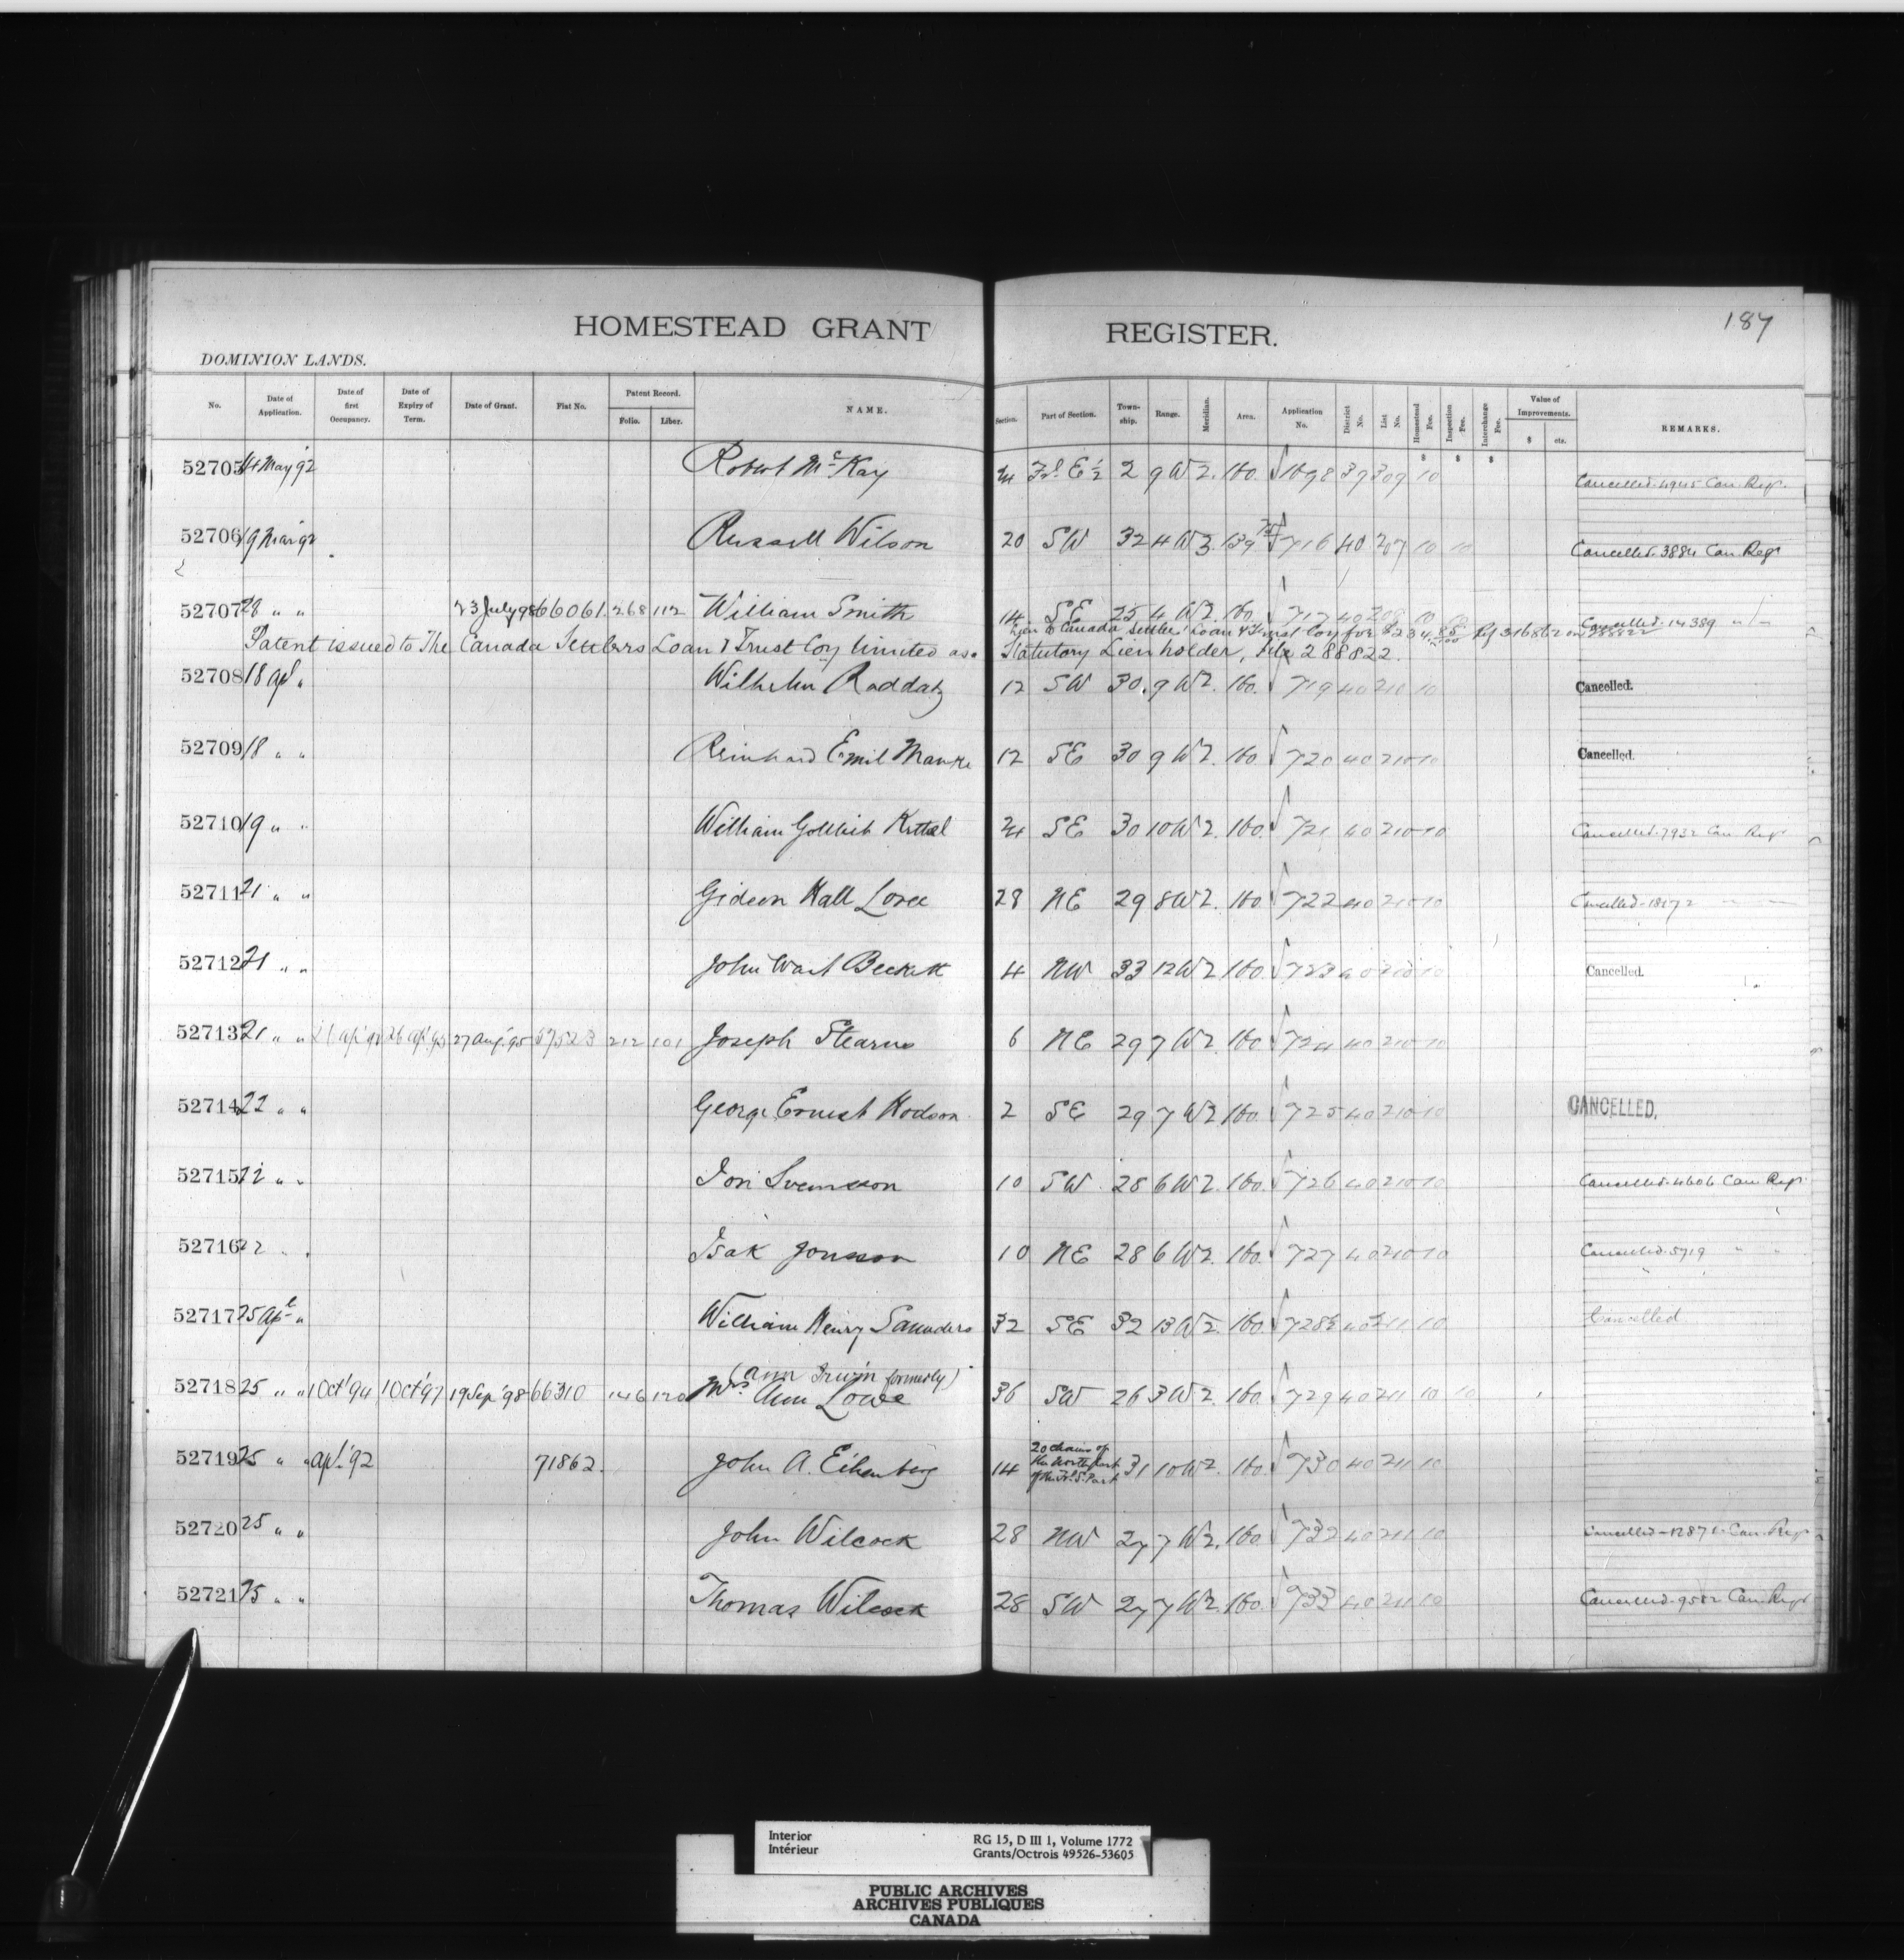 HOMESTEAD GRANT REGISTER.
187
DOMINION LANDS.
No. Date of Application. Date of first Occupancy. Date of Expiry of Term. Date of Grant. Fiat No. Patent Record. Folio. Liber. NAME. Section. Part of Section. Township. Range. Meridian. Area. Application No. District No. List No. Homestead Fee. Inspection Fee. Interchange Fee. Value of Improvements. $ cts. REMARKS.
52705 14 May '92 Robert McKay 24 Frl. E ½ 2 9 W 2. 160. 1698 39 309 10 Cancelled. 4945 Can. Regr.
52706 19 Mar 92 Russell Wilson 20 SW 32 4 W 3. 139 716 40 207 10 10 Cancelled. 3884 Can Regr
52707 28 " " 23 July 98 66061. 268 112 William Smith 14 SE 25 4 W 2. 160. 717 40 208 10 Cancelled. 14389 " "
Lien to Canada Settlers' Loan & Trust Coy for $234 Rf 316862 on 288822
Patent issued to The Canada Settlers Loan & Trust Coy limited as. Statutory Lien holder, File 288822.
52708 18 apl " Wilhelm Raddatz 12 SW 30. 9 W 2. 160. 719 40 210 10 Cancelled.
52709 18 " " Reinhard Emil 12 SE 30 9 W 2. 160 720 40 210 10 Cancelled.
52710 19 " " William Gottlieb Kittel 24 SE 30 10 W 2. 160. 721 40 210 10 Cancelled. 7932 Can Regr
52711 21 " " Gideon Hall 28 NE 29 8 W 2. 160 722 40 210 10 Cancelled.
52712 21 " " John Wait Beckett 4 NW 33 12 W 2 160. 723 40 210 10 Cancelled.
52713 21 " " 21 ap' 92 26 ap' 95 27 Aug. '95 57523 212 101 Joseph Stearns 6 NE 29 7 W 2. 160 724 40 210 10
52714 22 " " George Ernest Hodson 2 SE 29 7 W 2 160. 725 40 210 10 CANCELLED.
52715 22 " " Jon Sveinsson 10 SW 28 6 W 2. 160. 726 40 210 10 Cancelled. 4606 Can Regr.
52716 22 " " Isak Jonsson 10 NE 28 6 W 2. 160. 727 40 210 10 Cancelled. 5719 " "
52717 25 Apl " William Henry Saunders 32 SE 32 13 W 2. 160. 728 40 211 10 Cancelled
(Ann Irwin formerly)
52718 25 " " 1 Oct '94 1 Oct '97 19 Sep '98 66310 146 120 Mrs. Ann Lowe 36 SW 26 3 W 2. 160. 729 40 211 10 10
52719 25 " " apl. '92 71862. John A. Eikenberg 14 20 chains of the North part of the Frl. S. Part 31 10 W 2. 160. 730 40 211 10
52720 25 " " John Wilcock 28 NW 27 7 W 2. 160. 732 40 211 10 Cancelled Can. Regr
52721 25 " " Thomas Wilcock 28 SW 27 7 W 2. 160. 733 40 211 10 Cancelled. 9582 Can. Regr
Interior
Intérieur
RG 15, D III 1, Volume 1772
Grants/Octrois 49526-53605
PUBLIC ARCHIVES
ARCHIVES PUBLIQUES
CANADA